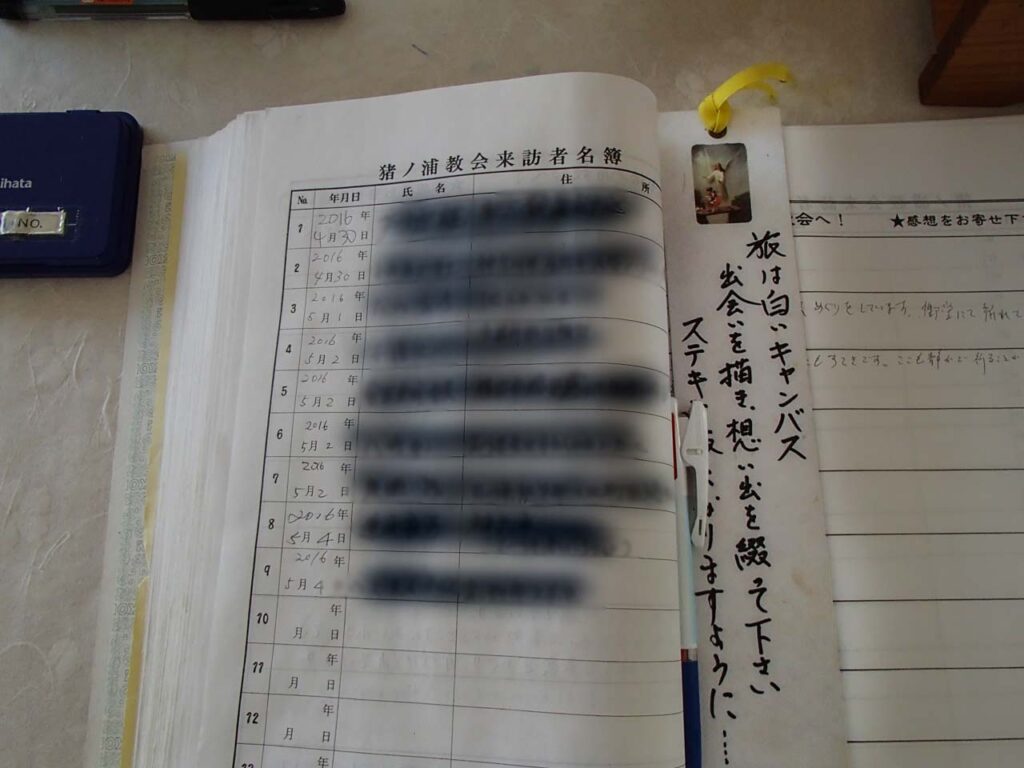 ihata
NO.
猪ノ浦教会来訪者名簿
№ 年月日 氏名 住所
1 2016年
4月30日
2 2016年
4月30日
3 2016年
5月1日
4 2016年
5月2日
5 2016年
5月2日
6 2016年
5月2日
7 2016年
5月2日
8 2016年
5月4日
9 2016年
5月4
10 年
月 日
11 年
月 日
12 年
月 日
13 年
旅は白いキャンバス
出会いを描き、想い出を綴て下さい
ステキ りますように、……
会へ! ★感想をお寄せ下
めぐりをしています。御堂にて祈れて